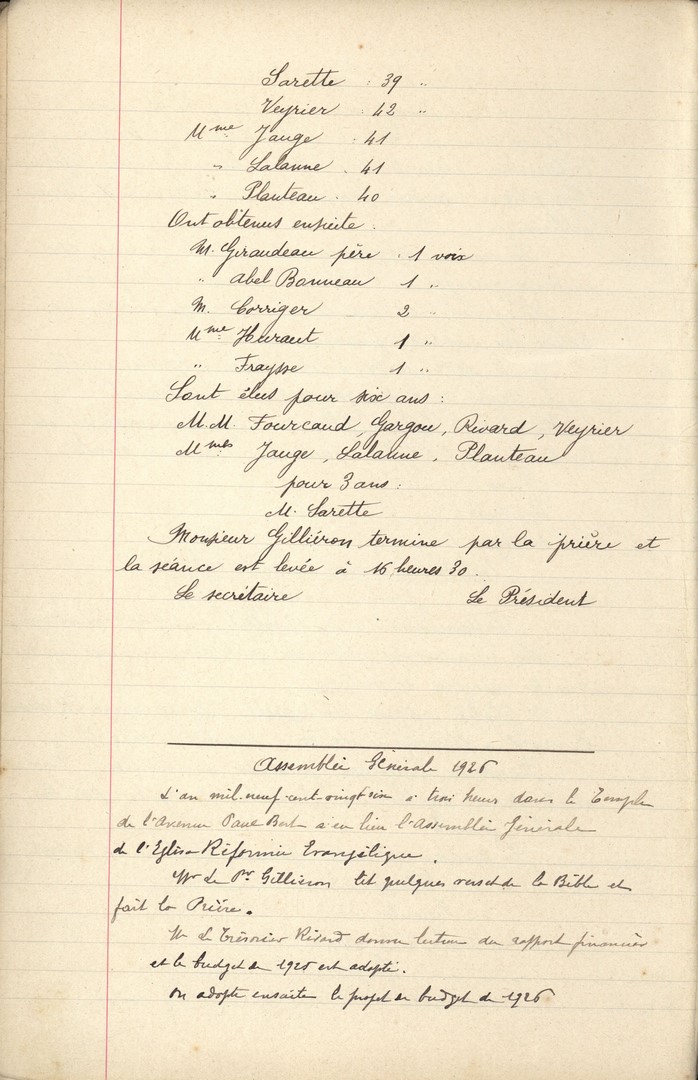 Sarette : 39 "
Veyrier : 42 "
Mme Jauge . 41
" Lalanne . 41
" Planteau . 40
Ont obtenus ensuite :
M. Giraudeau père . 1 voix
" Abel Bonneau 1 "
M. Corriger 2 "
Mme Huraut 1 "
" Fraysse 1 "
Sont élus pour six ans :
M.M. Fourcaud, Gargou, Rivard, Veyrier
Mmes Jauge, Lalanne, Planteau
pour 3 ans :
M. Sarette
Monsieur Gilliéron termine par la prière et
la séance est levée à 16 heures 30.
Le secrétaire Le Président
Assemblée Générale 1926
L'an mil-neuf-cent-vingt six à trois heures dans le Temple
de l'Avenue Paul Bert a eu lieu l'Assemblée Générale
de l'Eglise Réformée Evangélique.
Mr Le Pr Gilliéron lit quelques verset de la Bible et
fait la Prière.
Mr Le Trésorier Rivard donne lecture du rapport financier
et le budget de 1925 est adopté.
On adopte ensuite le projet de budget de 1926